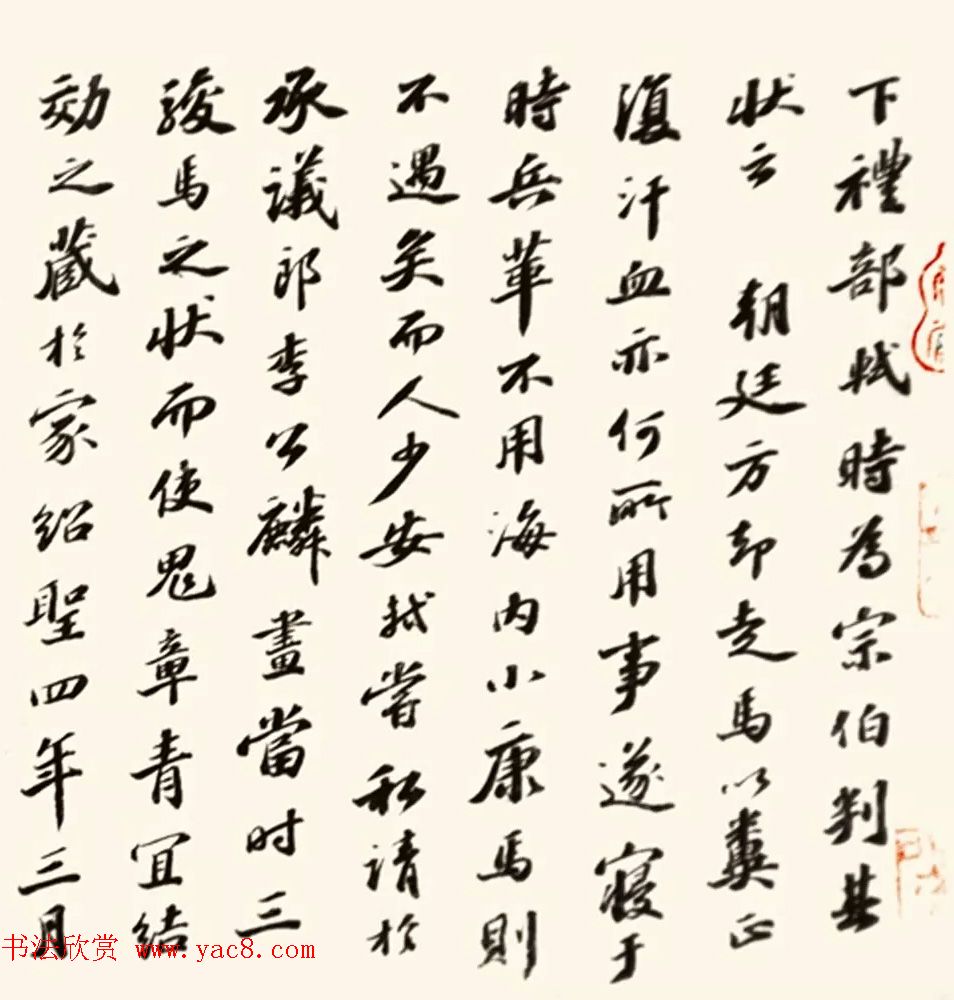 下禮部軾時為宗伯判其
狀云朝廷方却走馬以糞正
復汗血亦何所用事遂寢于
時兵革不用海內小康馬則
不遇矣而人少安軾嘗私請於
承議郎李公麟畫當时三
駿馬之狀而使鬼章青宜結
効之藏於家紹聖四年三月
书法欣赏 www.yac8.com